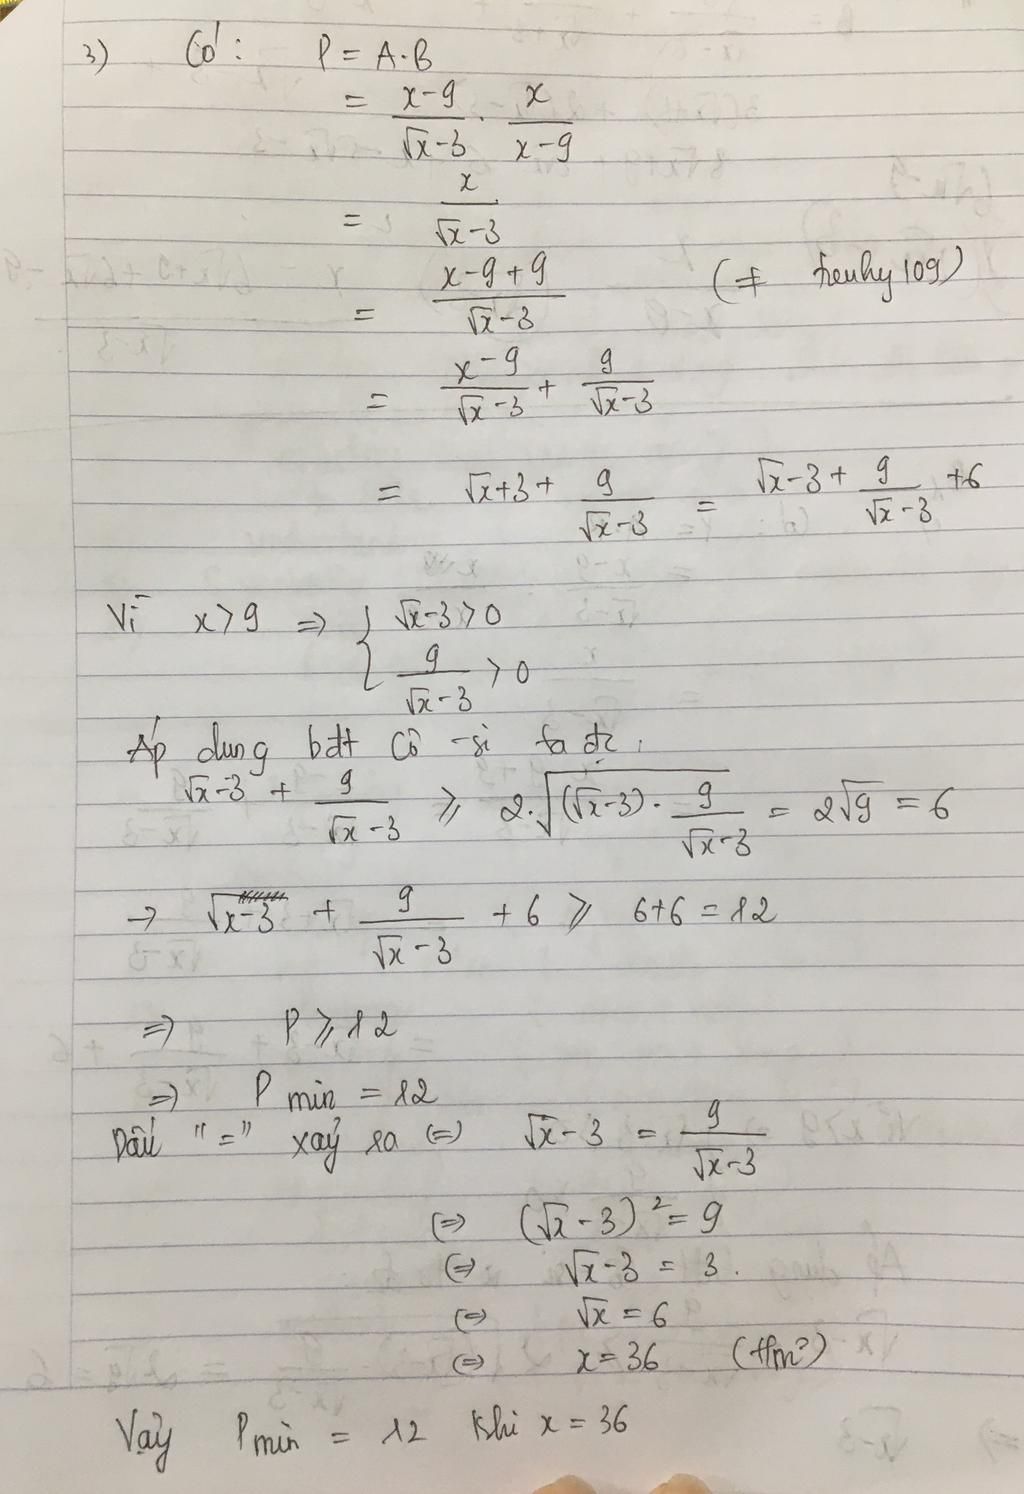 3) Có: P = A.B
= x-9/√x-3 . x/x-9
= x/√x-3
= x-9+9/√x-3 (≠ trenhy109)
= x-9/√x-3 + 9/√x-3
= √x+3 + 9/√x-3 = √x-3 + 9/√x-3 + 6
Vì x>9 => { √x-3>0
9/√x-3 >0
Áp dung bđt Cô-si ta đc:
√x-3 + 9/√x-3 ⩾ 2.√(√x-3).9/√x-3 = 2√9 = 6
-> √x-3 + 9/√x-3 + 6 ⩾ 6+6 = 12
=> P ⩾ 12
=> P min = 12
Dấu "=" xảy ra (=) √x-3 = 9/√x-3
(=) (√x-3)² = 9
(=) √x-3 = 3.
(=) √x = 6
(=) x=36 (t/m)
Vậy Pmin = 12 khi x = 36